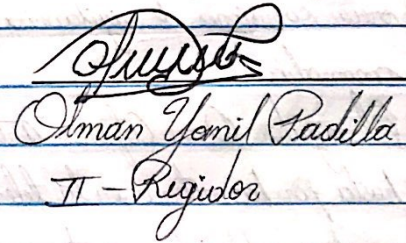 Olman Yanil Padilla
II - Regidor